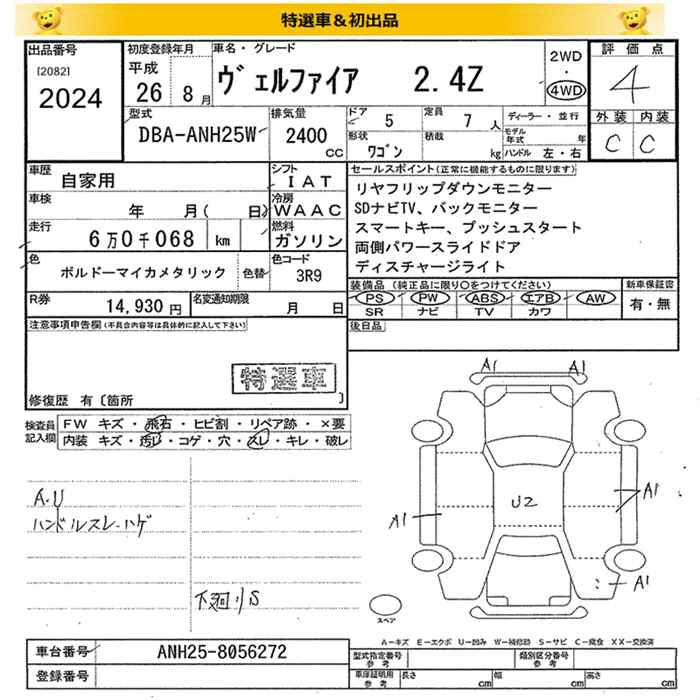 特選車＆初出品
出品番号
[2082]
2024
初度登録年月
平成
26 8月
車名・グレード
ヴェルファイア 2.4Z
2WD
・
4WD
評価点
4
外装 内装
C C
型式
DBA-ANH25W
排気量
2400
CC
ドア 5
定員 7 人
形状 ワゴン
積載 kg
ディーラー・並行
モデル年式 年
ハンドル 左・右
車歴
自家用
シフト
IAT
車検
年 月( 日)
冷房
WAAC
走行
6万0千068 km
燃料
ガソリン
色
ボルドーマイカメタリック
色替
色コード
3R9
R券
14,930 円
名変通知期限
月 日
セールスポイント(正常に機能するものに限ります)
リヤフリップダウンモニター
SDナビTV、バックモニター
スマートキー、プッシュスタート
両側パワースライドドア
ディスチャージライト
装備品 (純正品に限り○をつけてください)
新車保証書
PS PW ABS エアB AW
有・無
SR ナビ TV カワ
後日品
注意事項申告欄(不具合内容等は具体的に記入して下さい)
特選車
修復歴 有〔箇所 〕
検査員
記入欄
FW キズ・飛石・ヒビ割・リペア跡・×要
内装 キズ・汚レ・コゲ・穴・スレ・キレ・破レ
A.U
ハンドルスレ-ハゲ
下廻りS
A1 A1
U2
A1
A1
A1
スペア
A-キズ E-エクボ U-凹み W-補修跡 S-サビ C-腐食 XX-交換済
車台番号
ANH25-8056272
登録番号
型式指定番号
参考
類別区分番号
参考
車庫証明用
参考
長さ cm
幅 cm
高さ cm